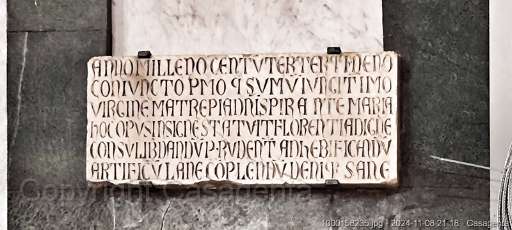 ANNO MILLENO CENTV TER TER TPENO
CONIVNCTO PMO Q SVMV IVNGIT IIMO
VIRGINE MATRE PIA DNI SPIRANTE MARIA
HOC OPVS INSIGNE STATVIT FLORENTIA DIGNE
CONSVLIB DANDV P RVDENT AD HEDIFICANDV
ARTIFICV LANE COPLENDV DENIQ SANE
Copyright Casagenta
1000158235.jpg - 2024-11-08 21:18 - Casagenta